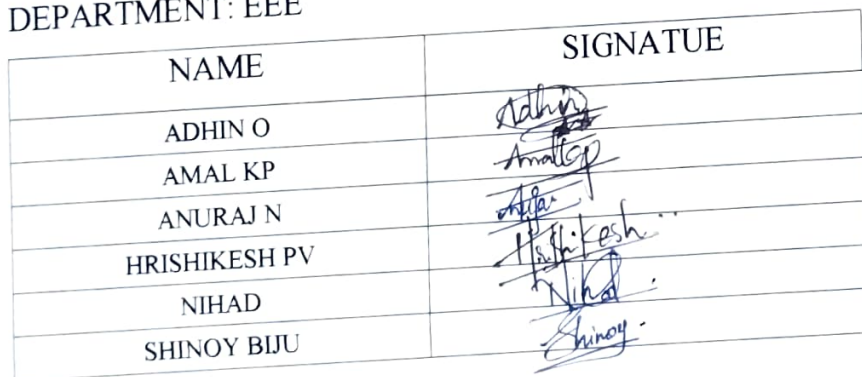 DEPARTMENT: EEE
NAME SIGNATUE
ADHIN O Adhin
AMAL KP Amalkp
ANURAJ N
HRISHIKESH PV Hrishikesh
NIHAD Nihad
SHINOY BIJU Shinoy